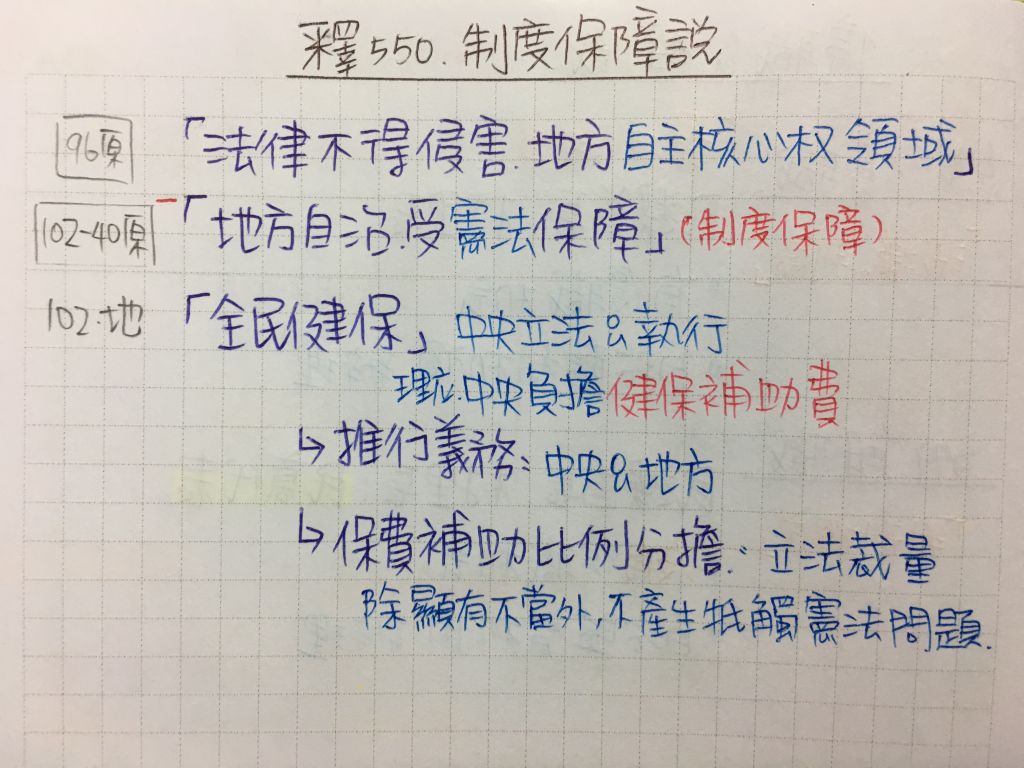 釋550.制度保障說
96原 「法律不得侵害.地方自主核心权領域」
102-40原 「地方自治.受憲法保障」(制度保障)
102.地 「全民健保」 中央立法&執行
理应.中央負擔健保補助費
↳推行義務: 中央&地方
↳保費補助比例分擔: 立法裁量
除顯有不當外,不產生牴觸憲法問題.